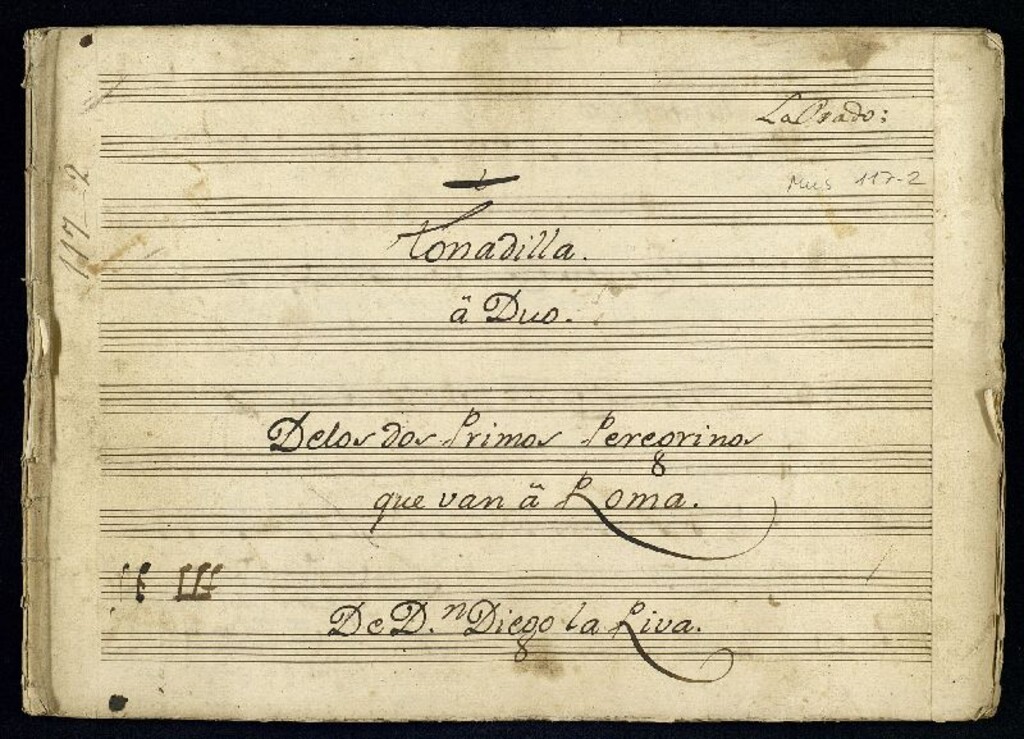 La Prado:
Mus 117-2
117-2
Tonadilla.
â Duo.
Delos dos Primos Peregrinos
que van â Roma.
De D.ⁿ Diego la Riva.